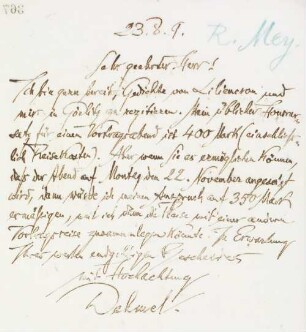 307
23.8.9.
R. Mey
Sehr geehrter Herr!
Ich bin gern bereit, Gedichte von Liliencron und
mir in Görlitz zu rezitieren. Mein üblicher Honorar-
satz für einen Vortragsabend ist 400 Mark (einschließ-
lich Reisekosten). Aber wenn Sie es ermöglichen können,
daß der Abend auf Montag den 22. November angesetzt
wird, dann würde ich meinen Anspruch auf 350 Mark
ermäßigen, weil ich dann die Reise mit einer andern
Vortragsreise zusammenlegen könnte. In Erwartung
Ihres werten endgültigen Bescheides
mit Hochachtung
Dehmel.